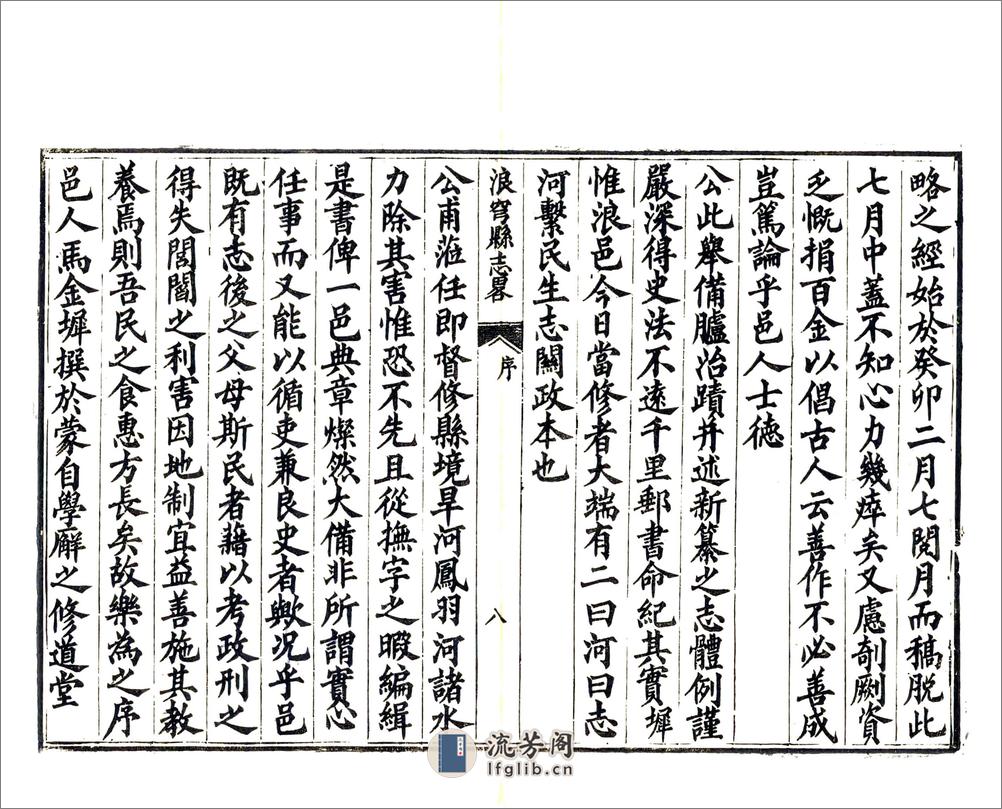 略之經始於癸卯二月七閱月而稿脫此
七月中蓋不知心力幾瘁矣又慮剞劂資
乏慨捐百金以倡古人云善作不必善成
豈篤論乎邑人士德
公此舉備臚治蹟并述新纂之志體例謹
嚴深得史法不遠千里郵書命紀其實墀
惟浪邑今日當修者大端有二曰河曰志
河繫民生志關政本也
浪穹縣志畧 序 八
公甫蒞任即督修縣境旱河鳳羽河諸水
力除其害惟恐不先且從撫字之暇編緝
是書俾一邑典章燦然大備非所謂實心
任事而又能以循吏兼良史者歟况乎邑
既有志後之父母斯民者藉以考政刑之
得失閭閻之利害因地制宜益善施其教
養焉則吾民之食惠方長矣故樂為之序
邑人馬金墀撰於蒙自學廨之修道堂
流芳阁
lfglib.cn